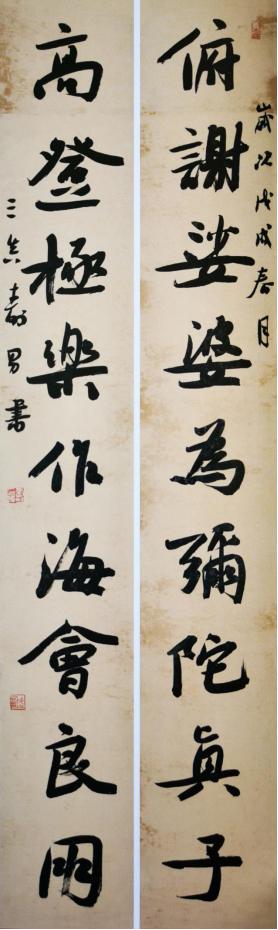 俯謝娑婆為彌陀真子
歲次戊戌春月
高登極樂作海會良朋
壽男書